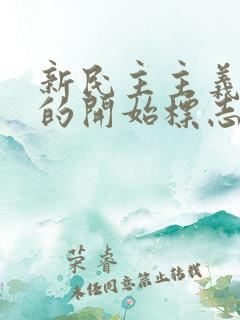 新民主主義
的開始標志
荣睿
未经同意禁止转载